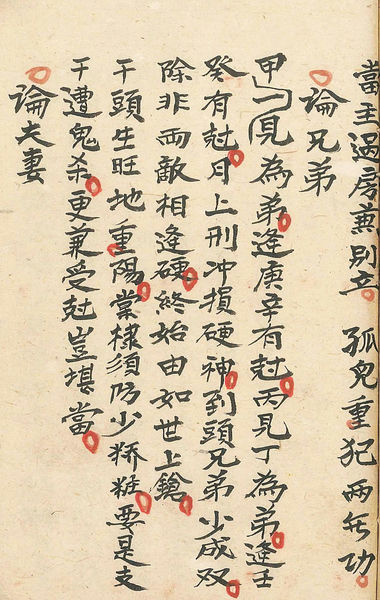 當主過房煎別立 孤兒重犯兩無功
論兄弟
甲乙見為弟逢庚辛有尅丙見丁為弟逢壬
癸有尅月上刑冲損硬神到頭兄弟少成双
除非兩敵相逢硬終始由如世上鎗
干頭生旺地重陽棠棣須防少桥娗要是支
干遭鬼杀更兼受尅豈堪當
論夫妻